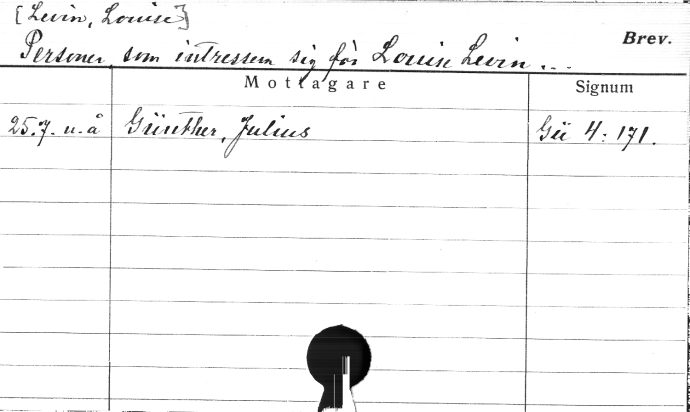 [Levin, Louise]
Brev.
Personer, som intressera sig för Louise Levin...
Mottagare Signum
25.7. u. å Günther, Julius Gü 4: 171.